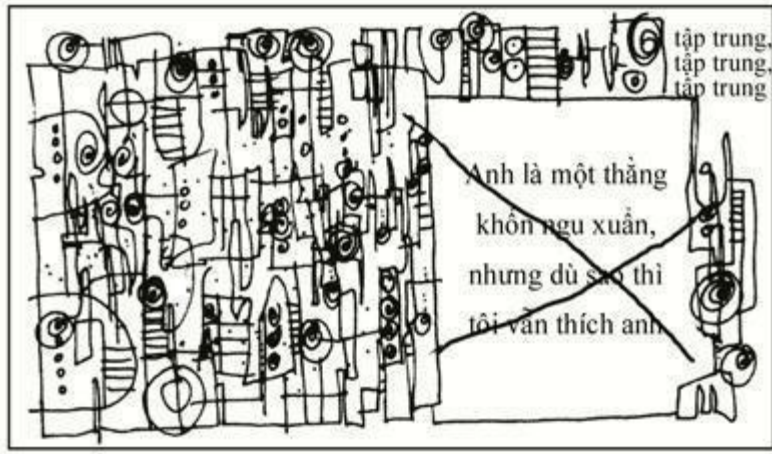 tập trung,
tập trung,
tập trung
Anh là một thằng
khôn ngu xuẩn,
nhưng dù sao thì
tôi vẫn thích anh